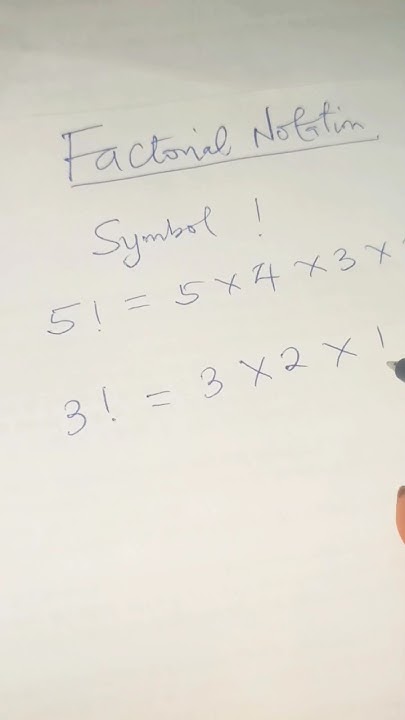 Factorial Notation
Symbol !
5! = 5 × 4 × 3 ×
3! = 3 × 2 × 1